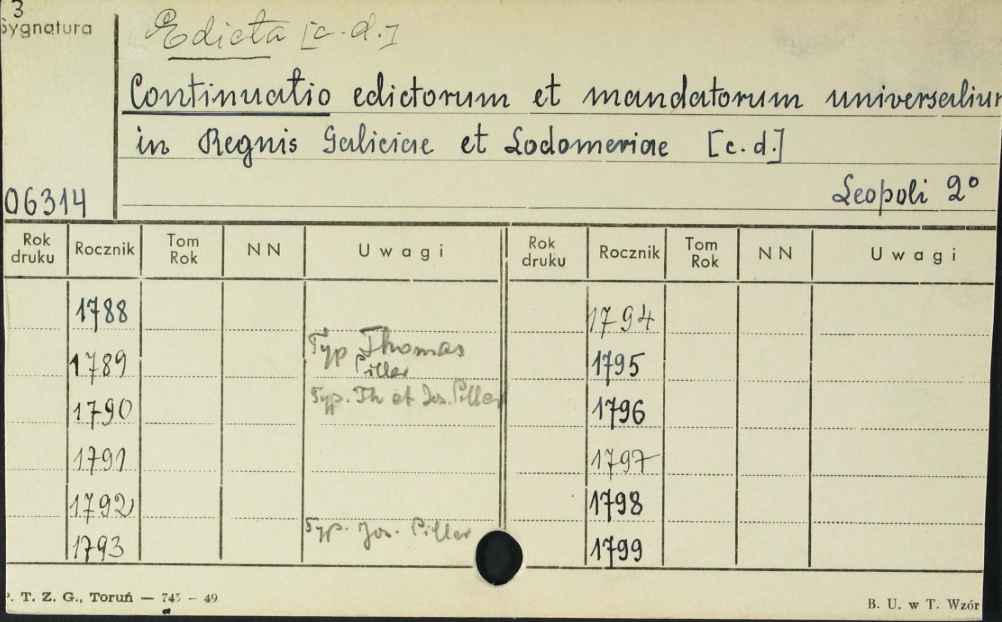 3
Sygnatura
Edicta [c.d.]
Continuatio edictorum et mandatorum universaliu
in Regnis Galiciae et Lodomeriae [c.d.]
Leopoli 2°
06314
Rok druku Rocznik Tom Rok NN Uwagi Rok druku Rocznik Tom Rok NN Uwagi
1788 1794
1789 Typ Thomas Piller 1795
1790 Typ. Th et Jos. Piller 1796
1791 1797
1792 1798
1793 Typ. Jos. Piller 1799
P. T. Z. G., Toruń — 745 - 49
B. U. w T. Wzór